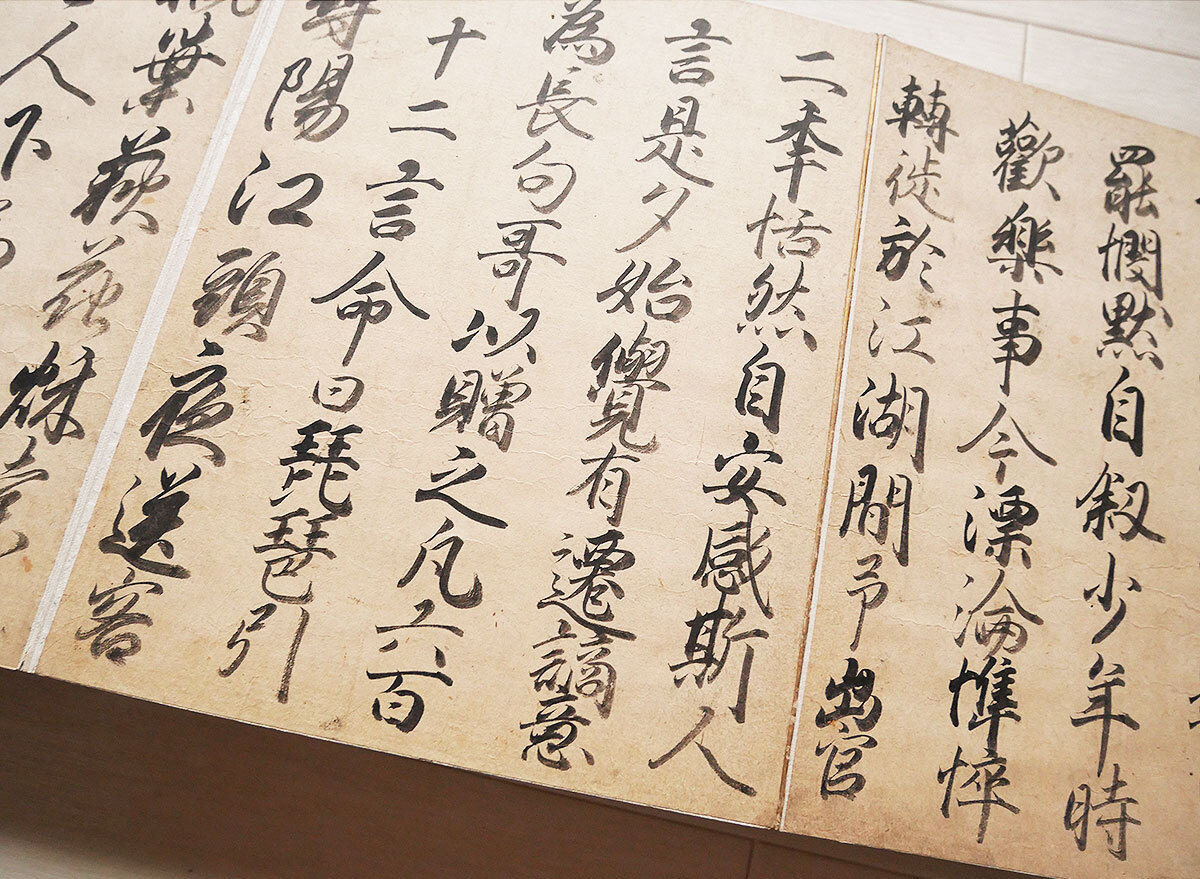 罷憫默自叙少年時
歡樂事今漂淪憔悴
轉徙於江湖間予出官
二秊恬然自安感斯人
言是夕始覺有遷謫意
為長句哥以贈之凡六百
十二言命曰琵琶引
潯陽江頭夜送客
楓葉荻花秌索
人下